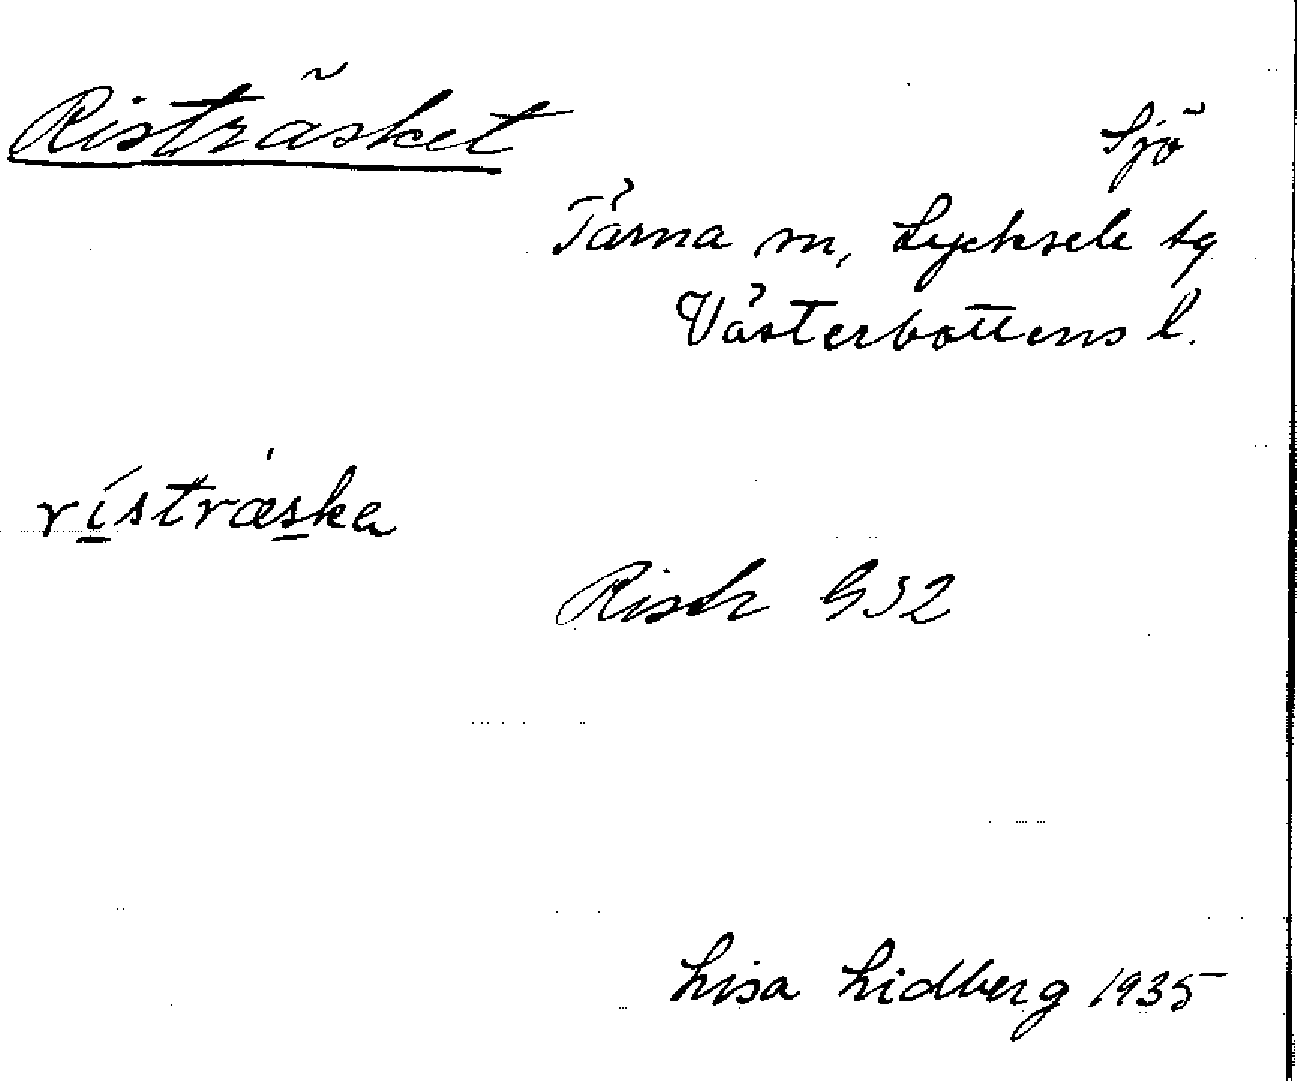 Risträsket
Sjö
Tärna sn, Lycksele tg
Västerbottens l.
rístræska
Lisa Lidberg 1935